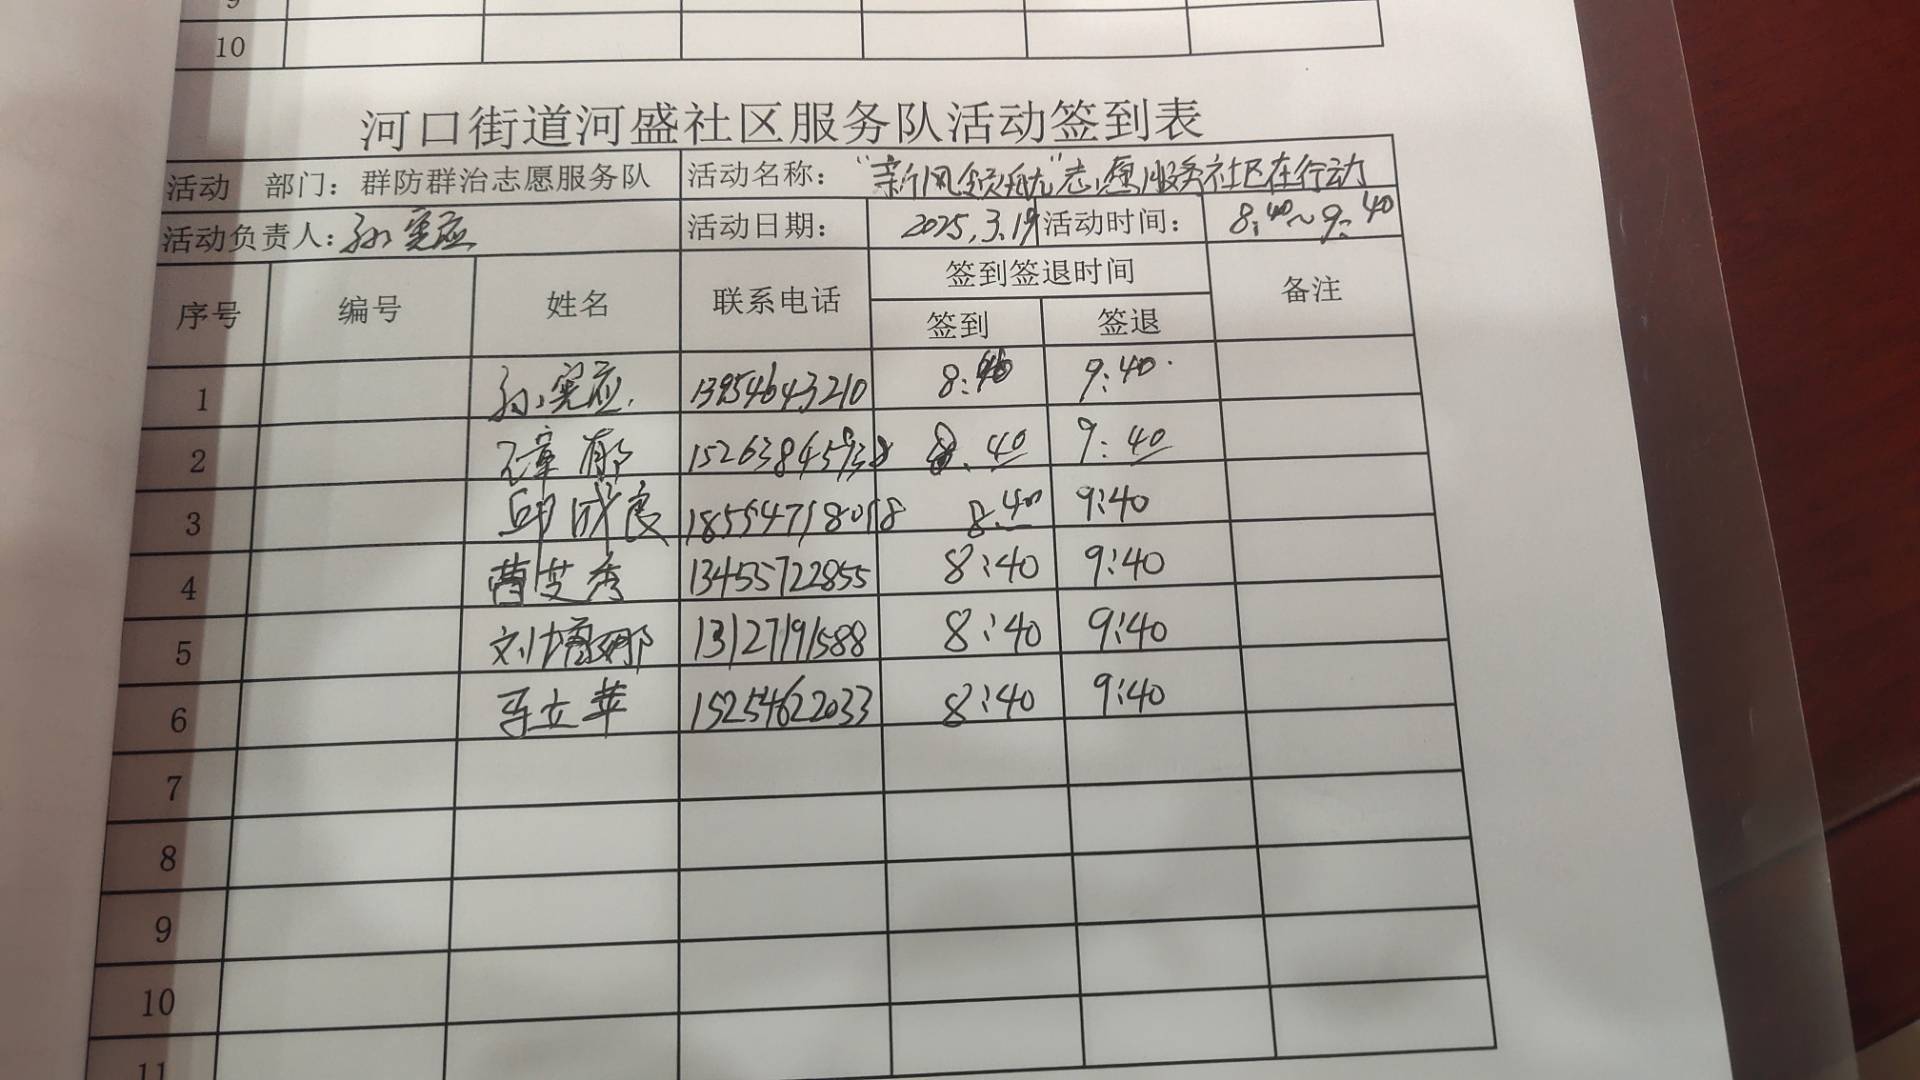 9
10
河口街道河盛社区服务队活动签到表
活动 部门：群防群治志愿服务队 活动名称："新风领航"志愿服务社区在行动
活动负责人：孙宪应 活动日期： 2025.3.19 活动时间： 8:40~9:40
序号 编号 姓名 联系电话 签到签退时间 备注
签到 签退
1 孙宪应 13954643210 8:40 9:40
2 15263845938 8.40 9:40
3 邱成良 18554718018 8.40 9:40
4 曹芝秀 13455722855 8:40 9:40
5 刘增娜 13127191588 8:40 9:40
6 马立苹 15254622033 8:40 9:40
7
8
9
10
11